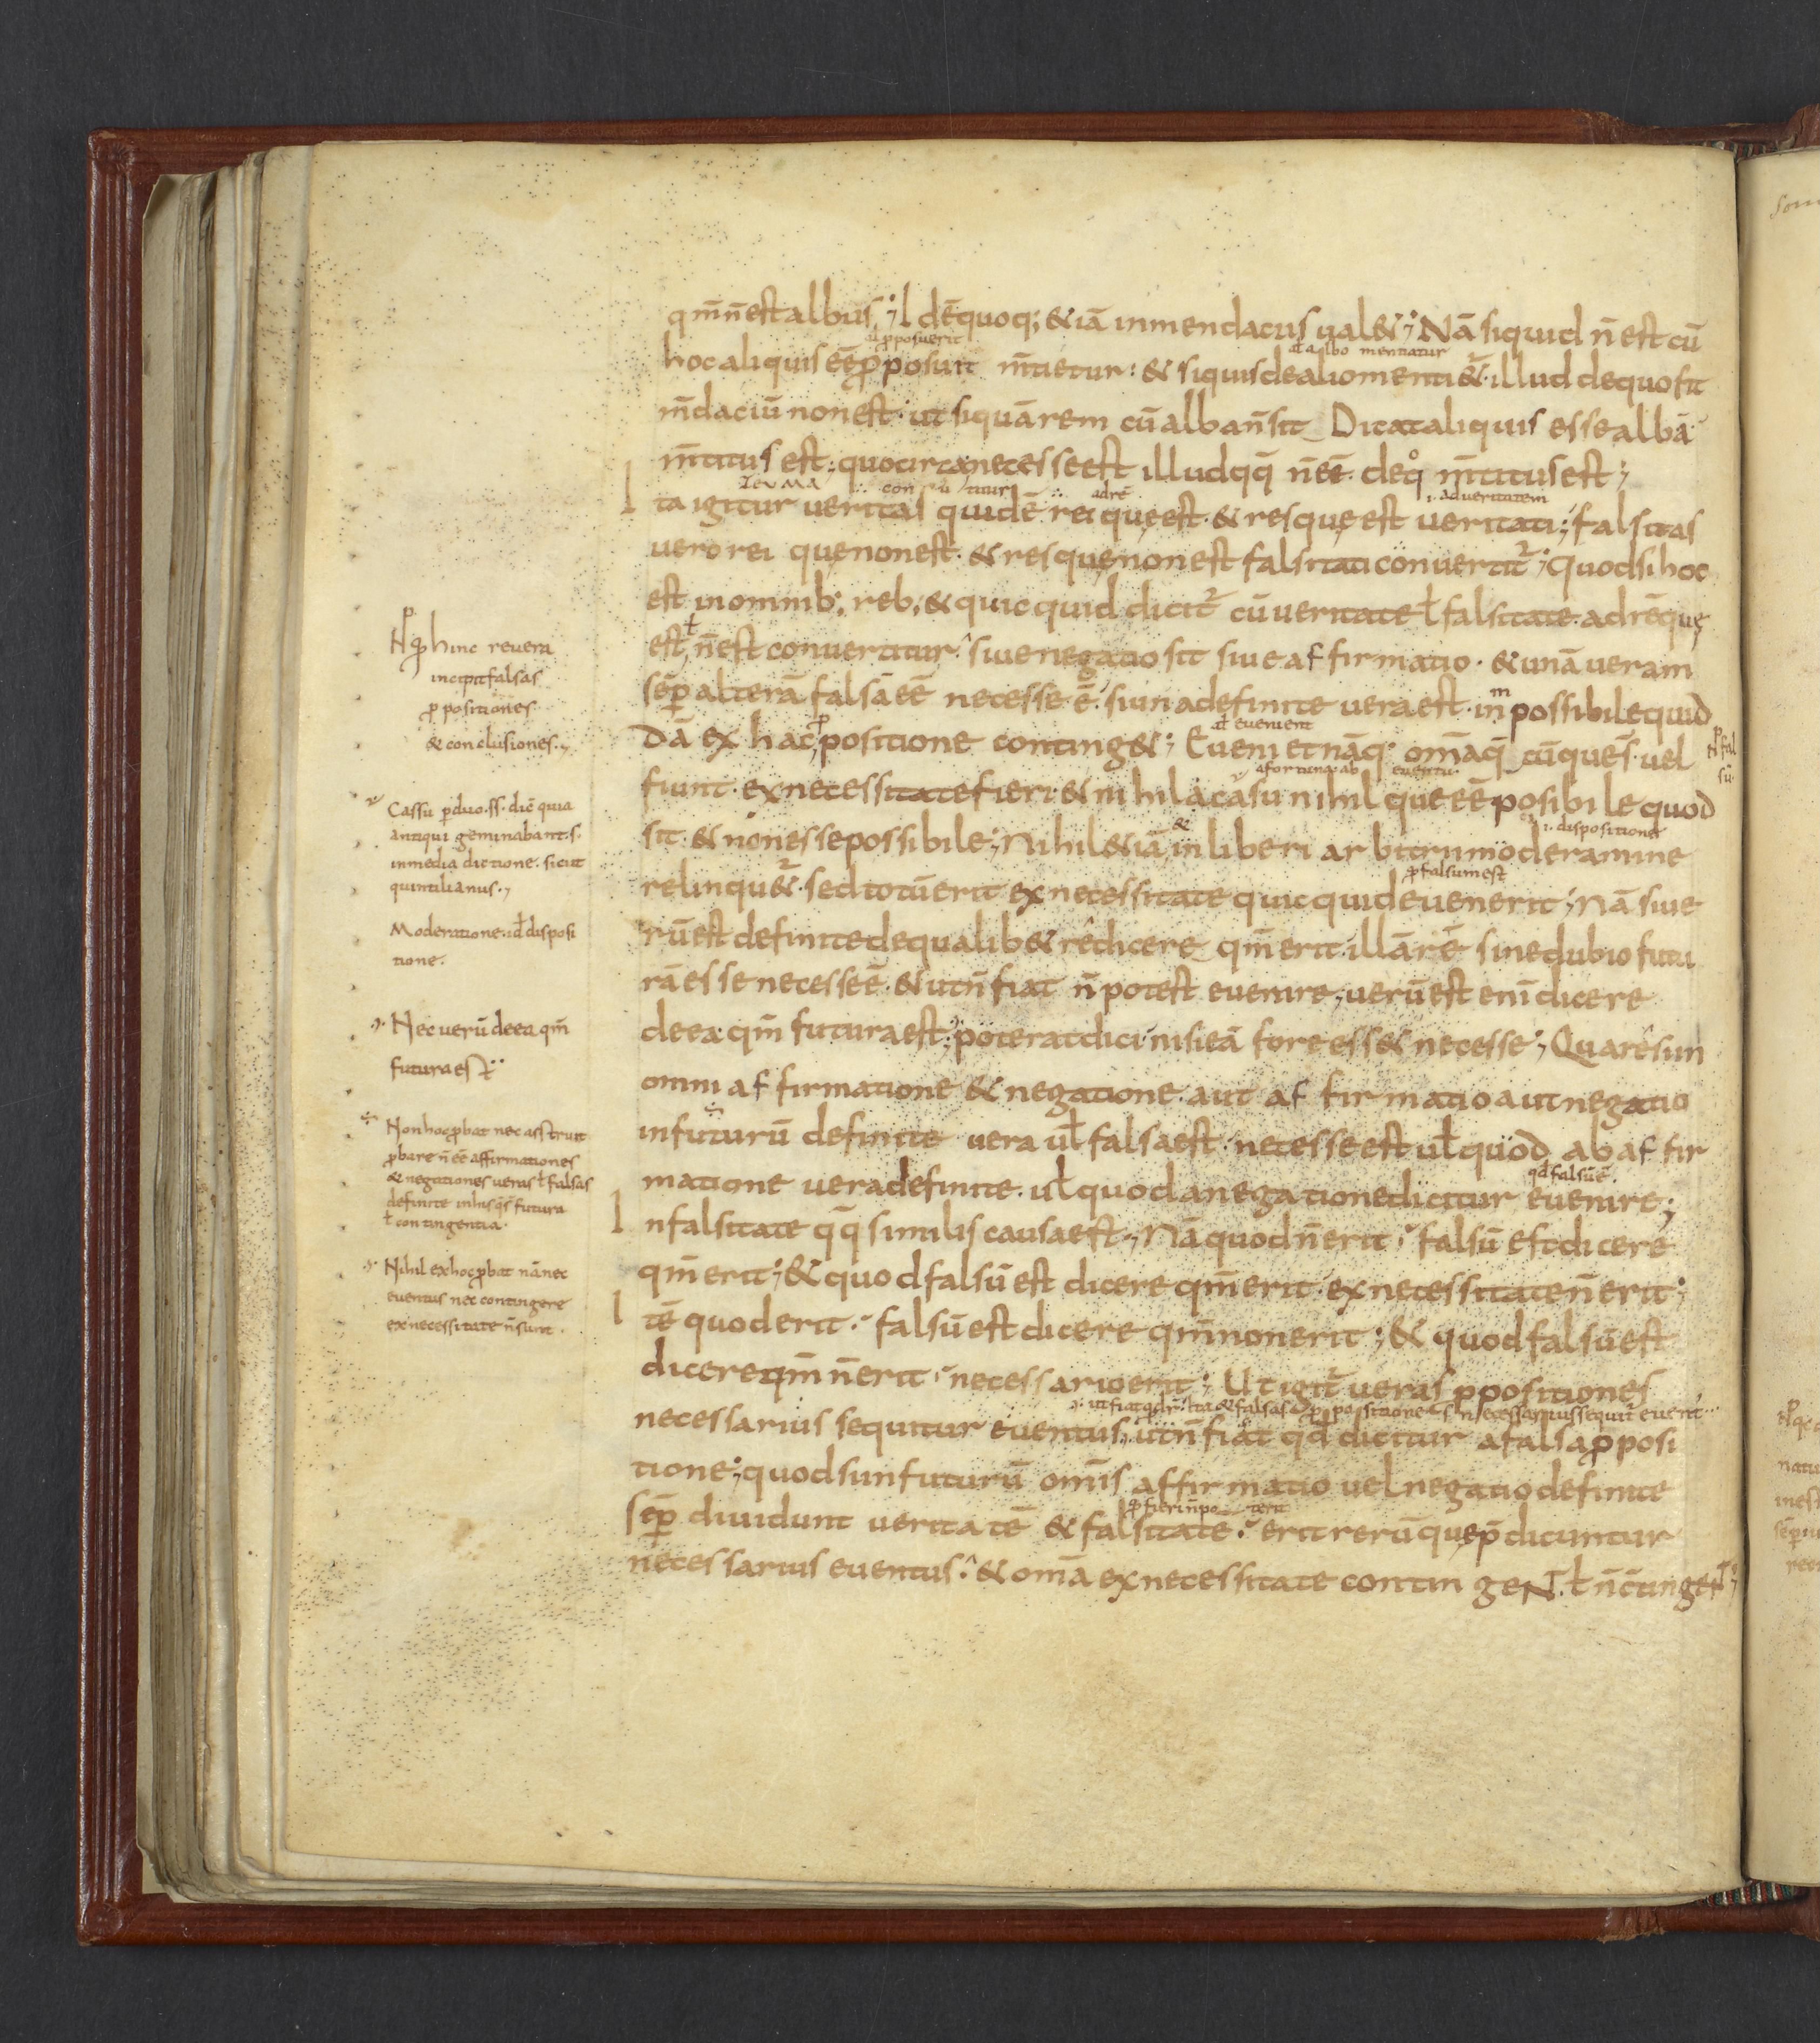 qm̄ n̄ est albus; Idē quoq; & iā in mendaciis ual&; Nā siquid n̄ est cū
ał pposuerit
ał albo mentiatur
hoc aliquis eē pposuit m̄tietur: & siquis de alio menti&ur illud de quo fit
m̄daciū non est. ut siquā rem cū alba n̄ sit Dicat aliquis esse albā
m̄titus est; quocirca necesse est illud qq̄ n̄ eē. de qo m̄titus est;
ad rē
i. ad ueritatem
Ita igitur ueritas quidē rei quę est. & res quę est ueritati; falsitas
uero rei quę non est. & res quę non est falsitati conuertit̄; Quod si hoc
est in omnib; reb; & quicquid dicit̄ cū ueritate ł falsitate. ad rē quę
est ł n̄ est conuertitur. siue negatio sit siue affirmatio. & unā ueram
sēp alterā falsā eē necesse ē. si una definite uera est. inpossibile quid
ał euenient
dā ex hac ppositione conting&; Eueniet nāq; om̄a q̄ cūque s̄. uel
a fortuna. ab euentu.
fiunt. ex necessitate fieri. & nihil a casu nihil quę eē posibile quod
i. dispositione
sit. & non esse possibile; Nihil &iā in liberi arbitrii moderamine
p falsum est
relinqu&ur. sed totū erit ex necessitate quicquid euenerit; Nā si ue
rū est definite de qualib& rē dicere qm̄ erit. illā rē sine dubio futu
rā esse necesse ē. & ut n̄ fiat n̄ potest euenire; uerū est enī dicere
de ea. qm̄ futura est; poterat dici nisi eā fore ess& necesse; Quare si in
omni affirmatione & negatione. aut affirmatio aut negatio
in futurū definite uera uł falsa est. necesse est uł quod ab affir
qd falsū ē.
matione uera definite. uł quod a negatione dicitur euenire;
In falsitate qq̄ similis causa est; Nā quod n̄ erit. falsū est dicere
qm̄ erit; & quod falsū est dicere qm̄ erit. ex necessitate n̄ erit;
Itē quod erit. falsū est dicere qm̄ non erit; & quod falsū est
dicere qm̄ n̄ erit. necessario erit; Ut igit̄ ueras ppositiones
ut fiat qd dr̄. ita & falsas ppositiones necessarius sequit̄ euent
necessarius sequitur euentus. ut n̄ fiat qd dicitur a falsa pposi
tione; quod si in futurū om̄is affirmatio uel negatio definite
sēp diuidunt ueritatē & falsitatē. erit rerū quę p̄dicuntur
necessarius euentus. & om̄a ex necessitate contingeNT. ł n̄ c̄tingeNT;
Np hinc reuera
incipit falsas
ppositiones
& conclusiones.
Cassu p duo .ss. dic̄ quia
antiqui geminabant .s.
in media dictione. sicut
quintilianus.
Moderatione. id disposi
tione.
Nec uerū de ea qm̄
futura est
Non hoc pbat nec asstruit
pbare n̄ eē affirmationes
& negationes ueras ł falsas
definite in his q̄ s̄ futura
ł contingentia.
Nihil ex hoc pbat nā nec
euentus nec contingere
ex necessitate n̄ sunt.